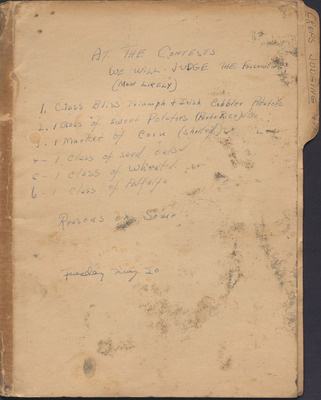 AT THE CONTESTS
WE WILL JUDGE THE
(MOST LIKELY)
1. Class Bliss Triumph & Irish Cobbler Potatoes
2. 1 Class of Sweet Potatoes (Porto Rico)
1 of Corn (Shelled)
1 Class of Seed Oats
5 - 1 Class of Wheat
6 - 1 Class of Alfalfa
Reasons on Some
May 20
CROPS JUDGING